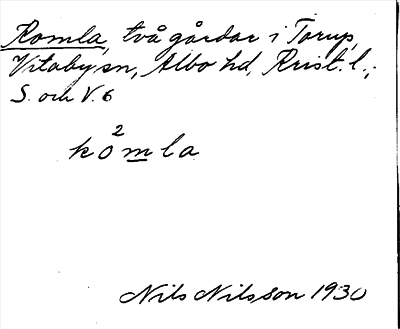 Komla, två gårdar i Torup,
Vitaby sn, Albo hd, Krist. l.;
S. och V. 6
2
komla
Nils Nilsson 1930